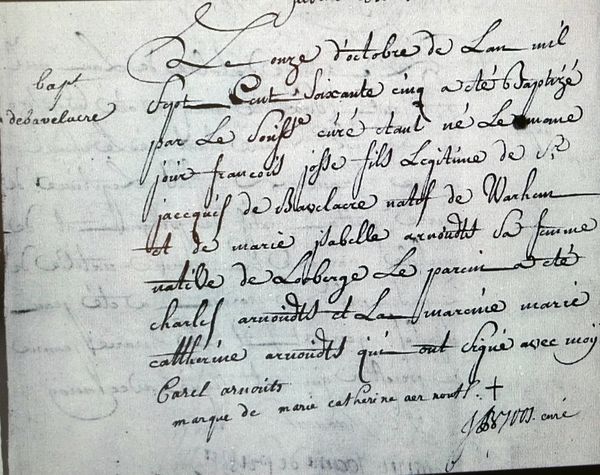 bapt
debavelaere
Le onze d'octobre de L'an mil
Sept Cent Soixante cinq a eté Baptizé
par Le Soussé curé etant né Le meme
jour francois josse fils Legitime de Sr
jaecques de Bavelaere natif de Warhem
et de marie jsabelle arnoudts Sa femme
native de Looberge Le parein a eté
charles arnoudts et La mareine marie
cattherine arnoudts qui ont Signé avec moy
Carel arnouts
marque de marie catherine aernouts. +
curé